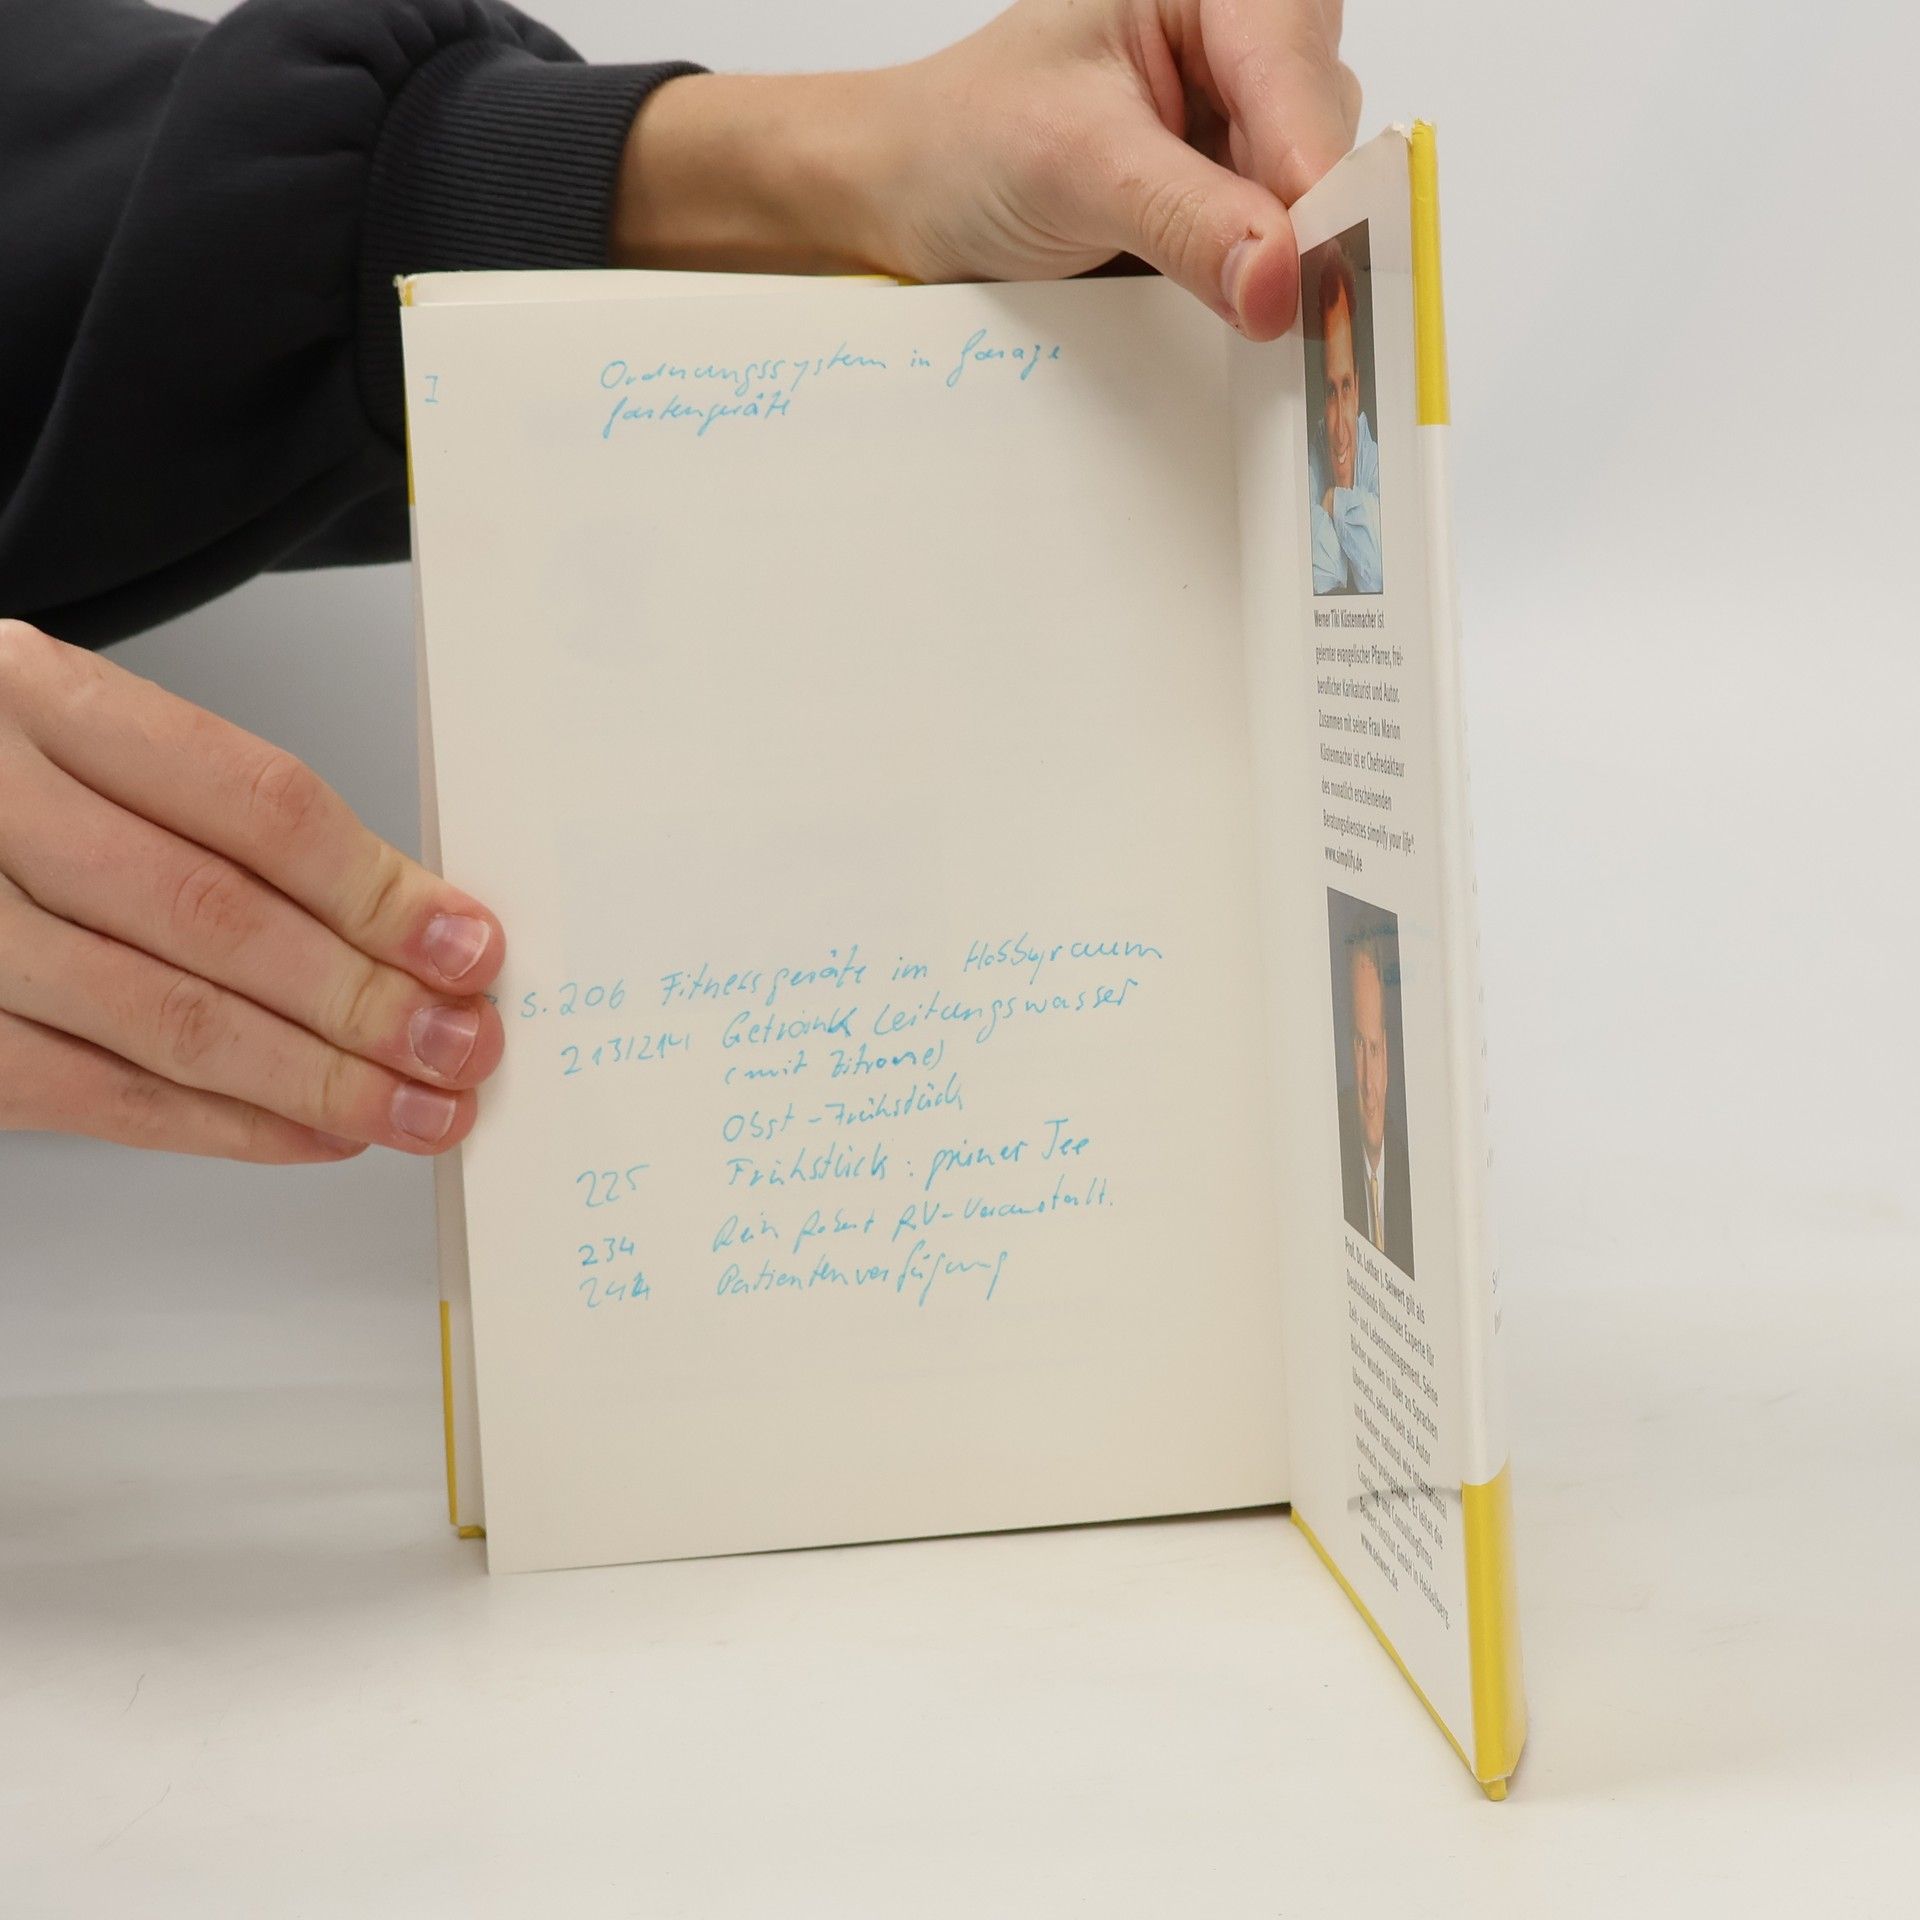 I Ordnungssystem in Garage
Gartengeräte
S. 206 Fitnessgeräte im Hobbyraum
213/214 Getränk Leitungswasser
(mit Zitrone)
Obst-Frühstück
225 Frühstück: grüner Tee
234 Robert RV-Veranstalt.
Patientenverfügung
Werner Tiki Küstenmacher ist
gelernter evangelischer Pfarrer, frei-
beruflicher Karikaturist und Autor.
Zusammen mit seiner Frau Marion
Küstenmacher ist er Chefredakteur
des monatlich erscheinenden
Beratungsdienstes simplify your life®.
www.simplify.de
Prof. Dr. Lothar J. Seiwert gilt als
Deutschlands führender Experte für
Zeit- und Lebensmanagement. Seine
Bücher wurden in über 20 Sprachen
übersetzt, seine Arbeit als Autor
und Redner national wie international
mehrfach preisgekrönt. Er leitet die
Coaching- und Consultingfirma
Seiwert-Institut GmbH in Heidelberg.
www.seiwert.de